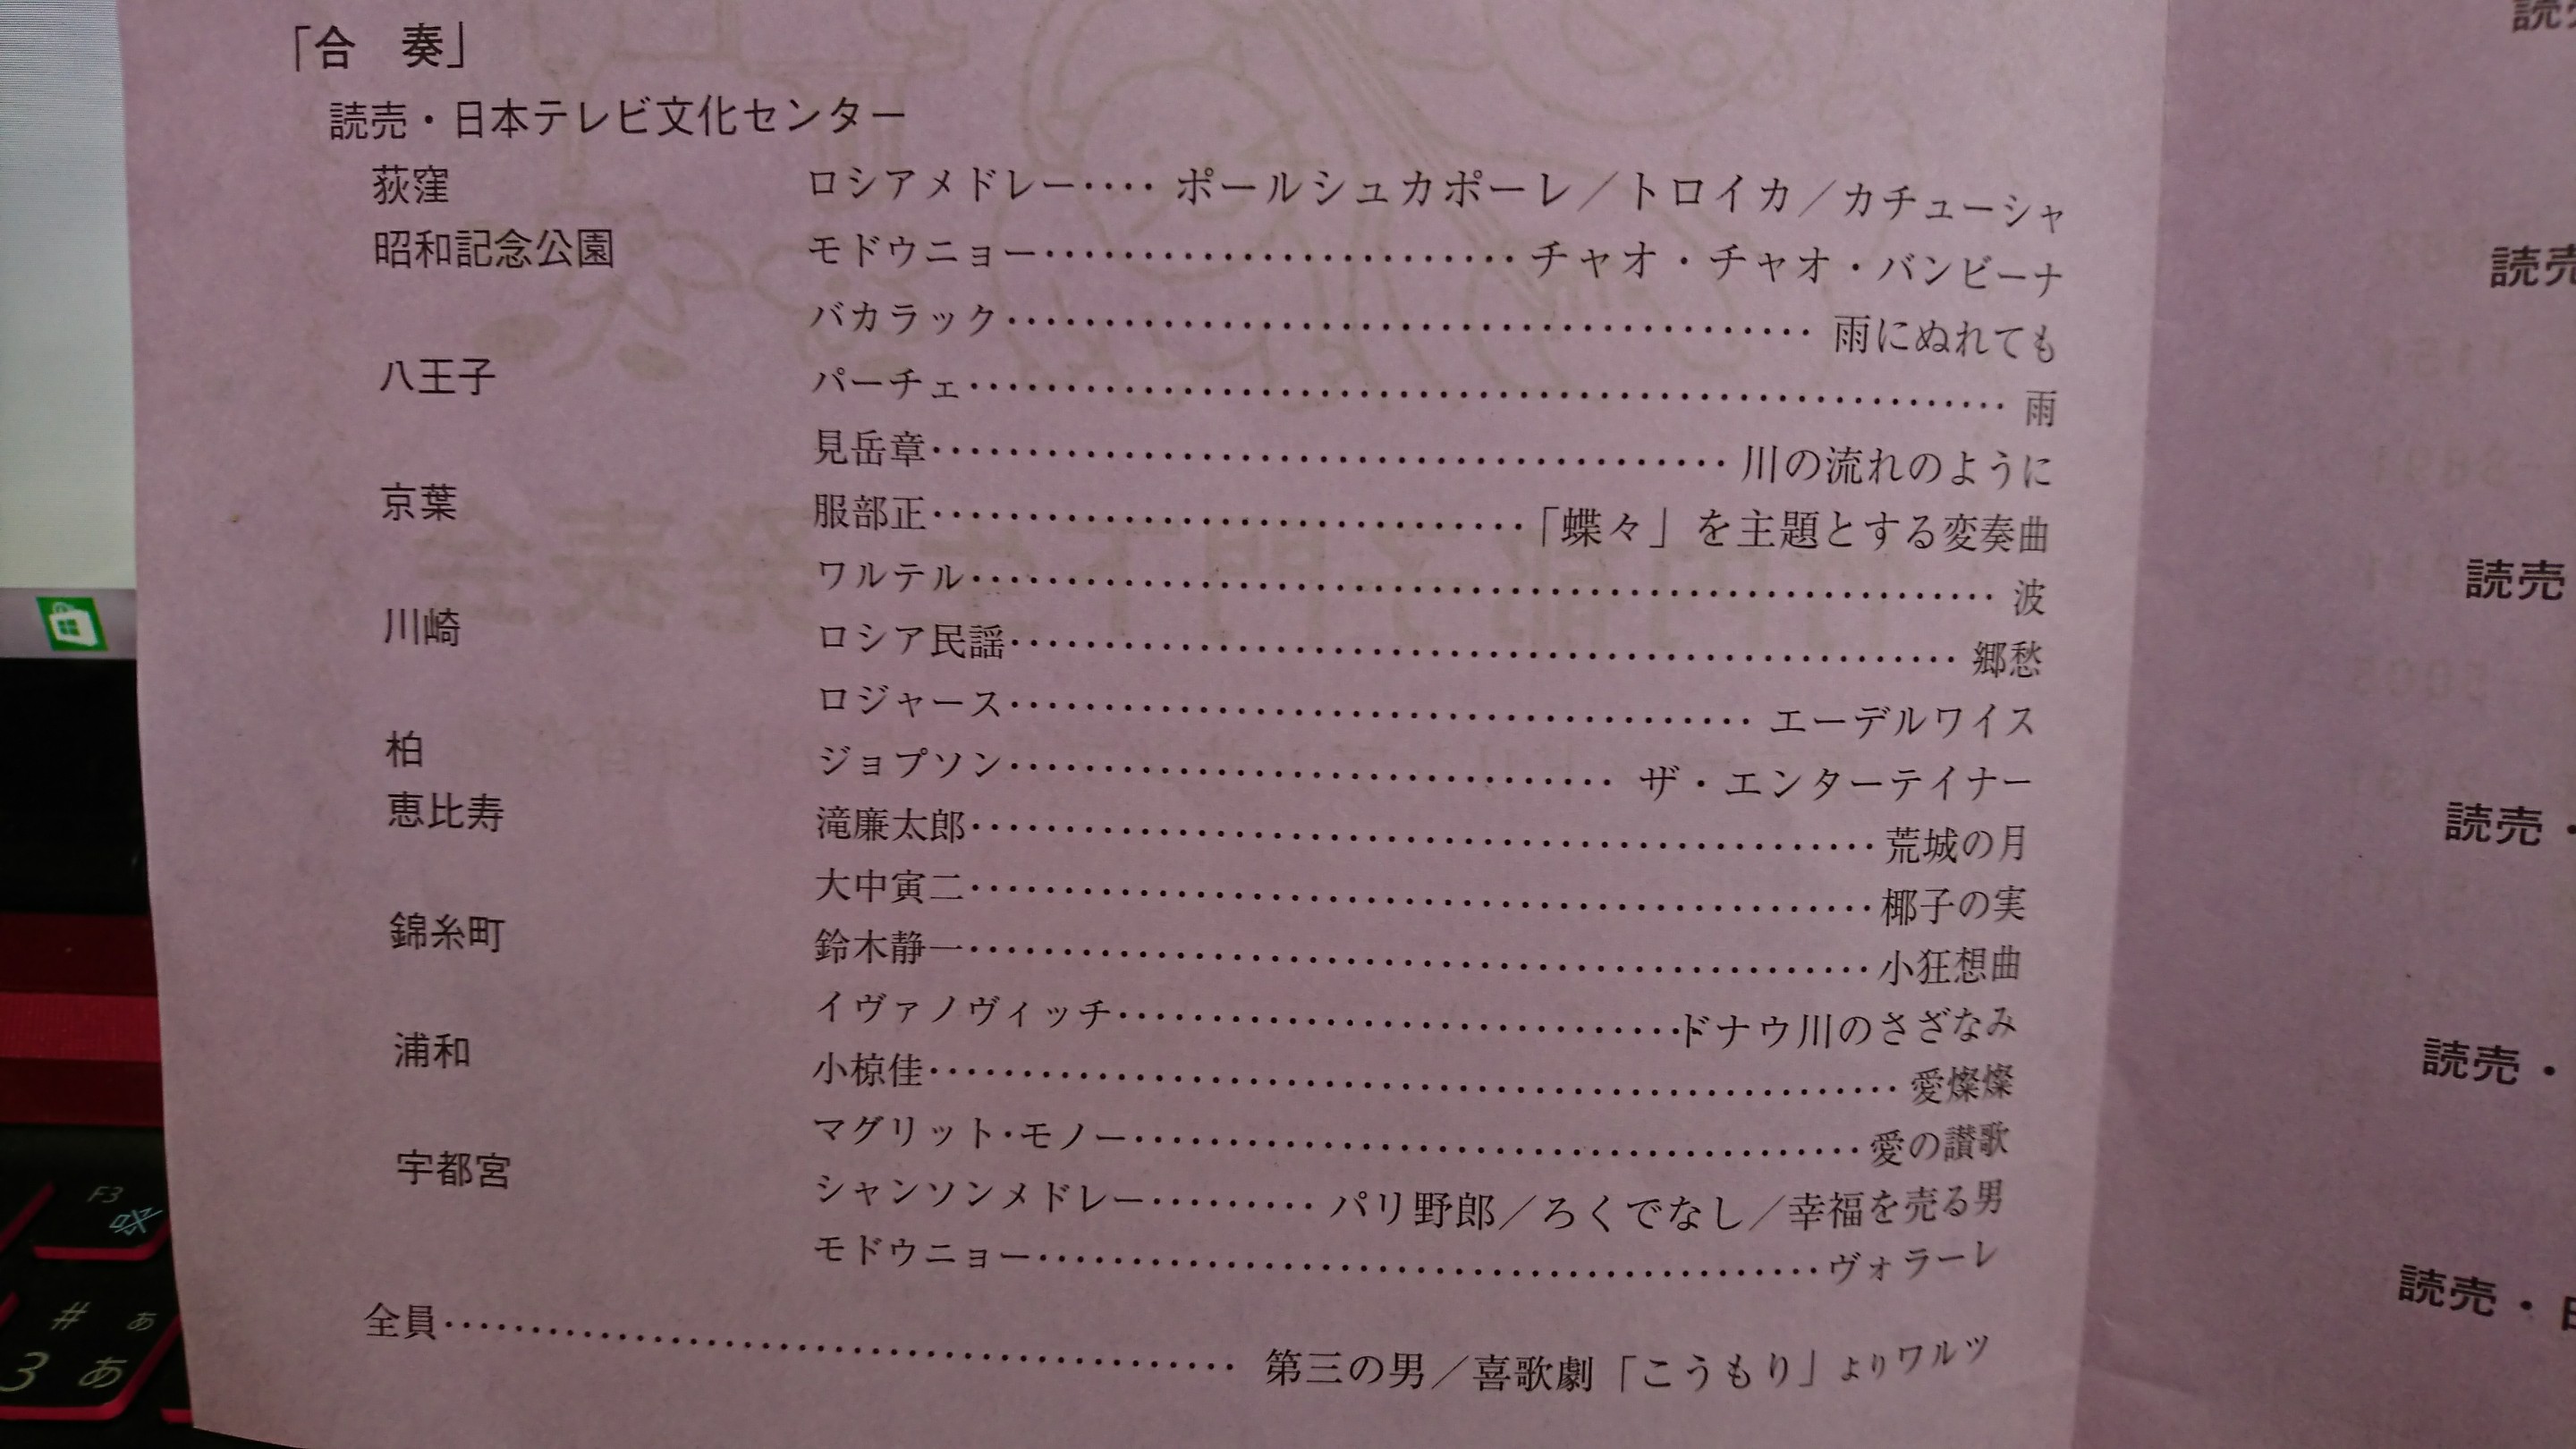 「合　奏」
読売・日本テレビ文化センター
荻窪　ロシアメドレー････ ポールシュカポーレ／トロイカ／カチューシャ
昭和記念公園　モドウニョー････････････チャオ・チャオ・バンビーナ
バカラック････････････雨にぬれても
八王子　パーチェ････････････雨
見岳章････････････川の流れのように
京葉　服部正････････････「蝶々」を主題とする変奏曲
ワルテル････････････波
川崎　ロシア民謡････････････郷愁
ロジャース････････････エーデルワイス
柏　ジョプソン････････････ザ・エンターテイナー
恵比寿　滝廉太郎････････････荒城の月
大中寅二････････････椰子の実
錦糸町　鈴木静一････････････小狂想曲
イヴァノヴィッチ････････････ドナウ川のさざなみ
浦和　小椋佳････････････愛燦燦
マグリット・モノー････････････愛の讃歌
宇都宮　シャンソンメドレー･････････ パリ野郎／ろくでなし／幸福を売る男
モドウニョー････････････ヴォラーレ
全員････････････第三の男／喜歌劇「こうもり」よりワルツ
読売
読売
読売・
読売・
読売・
F3
# ぁ
3 あ